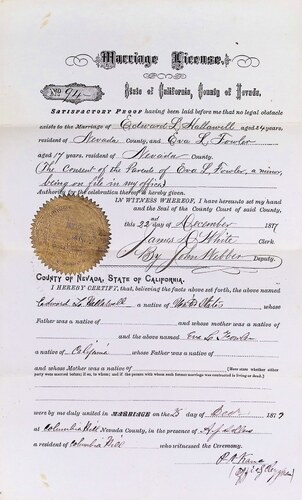 Marriage License.
No. 94
State of California, County of Nevada.
SATISFACTORY PROOF having been laid before me that no legal obstacle
exists to the Marriage of Edward L Hallawell aged 24 years,
resident of Nevada County, and Eva L. Fowler
aged 17 years, resident of Nevada county.
(The Consent of the Parents of Eva L. Fowler, a minor,
being on file in my office)
Authority for the celebration thereof is hereby given.
IN WITNESS WHEREOF, I have hereunto set my hand
and the Seal of the County Court of said County,
this 22nd day of December 1877
James White Clerk.
By John Webber Deputy.
COUNTY OF NEVADA, STATE OF CALIFORNIA.
I HEREBY CERTIFY, that, believing the facts above set forth, the above named
Edward L Hallawell a native of
Father was a native of and whose mother was a native of
and the above named Eva L Fowler
a native of California whose Father was a native of
and whose Mother was a native of [Here state whether either
party were married before; if so, to whom; and if the person with whom such former marriage was contracted is living or dead.]
were by me duly united in MARRIAGE on the 25 day of Dec 1877
at Columbia Hill Nevada County, in the presence of
a resident of Columbia Hill who witnessed the Ceremony.